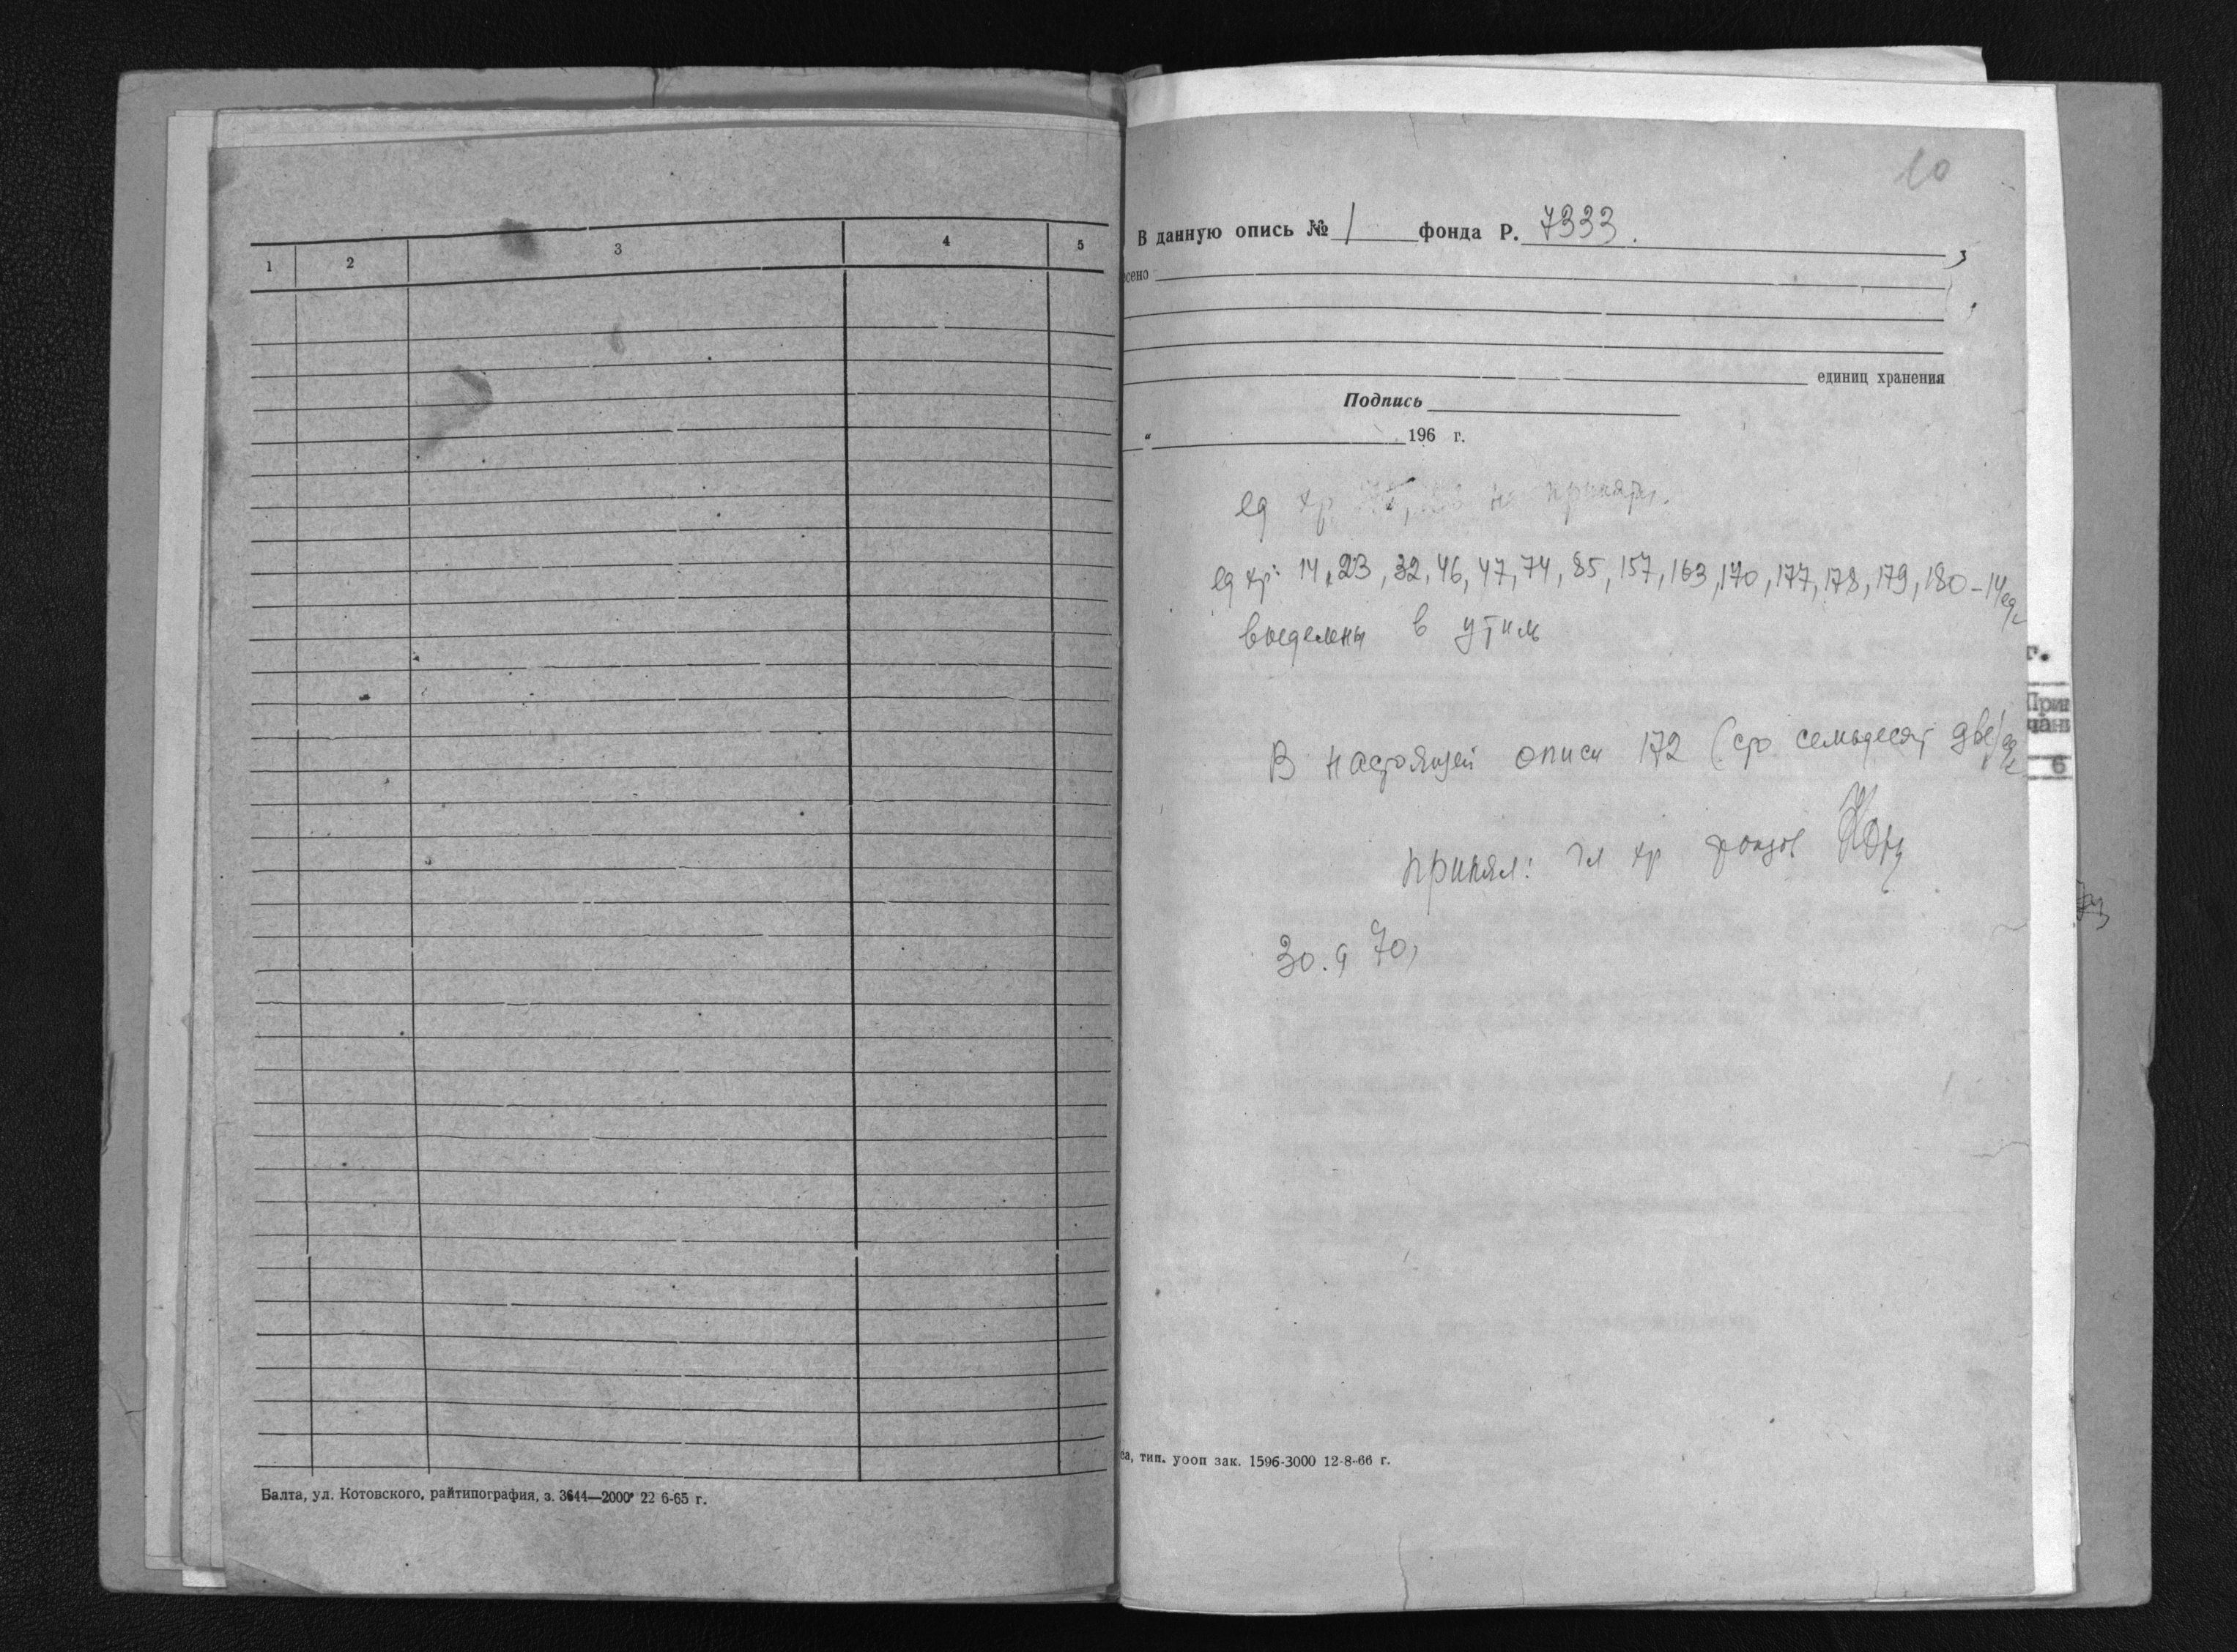 1 2 3 4 5
Балта, ул. Котовского, райтипография, з. 3644—2000 22 6-65 г.
10
В данную опись № 1 фонда Р. 7333.
сено
единиц хранения
Подпись
" 196 г.
ед хр не приняты.
ед хр: 14, 23, 32, 46, 47, 74, 85, 157, 163, 170, 177, 178, 179, 180 – 14 ед.
выделены в утиль
В настоящей описи 172 (сто семьдесят две)
принял: гл хр фондов
30. 9 70,
са, тип. уооп зак. 1596-3000 12-8-66 г.
г.
Прим
чани
6